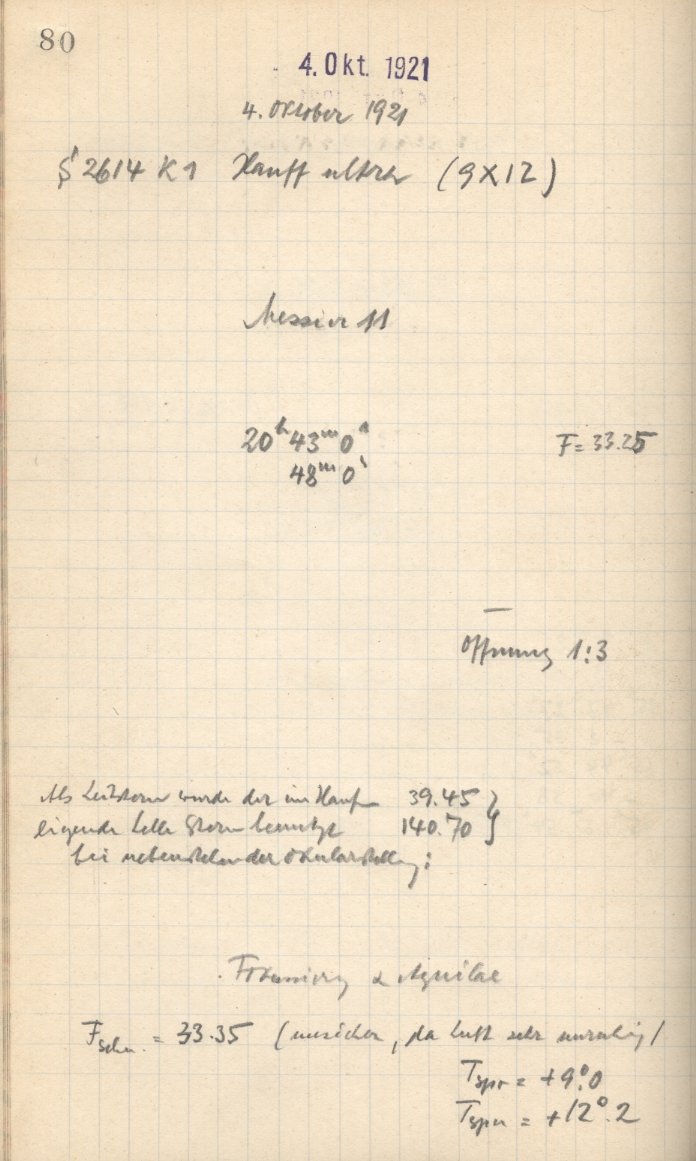 80
4. Okt. 1921
4. Oktober 1921
S 2614 K1 Hauff ultra (9×12)
Messier 11
20ʰ43ᵐ0ˢ F = 33.25
48ᵐ0ˢ
Öffnung 1:3
Als Leitstern wurde der im Haufen 39.45 }
liegende helle Stern benutzt 140.70 }
bei nebenstehender Okularstellung:
Fokussierung α Aquilae
F = 33.35 (unsicher, da Luft sehr unruhig)
T = +9°.0
T = +12°.2